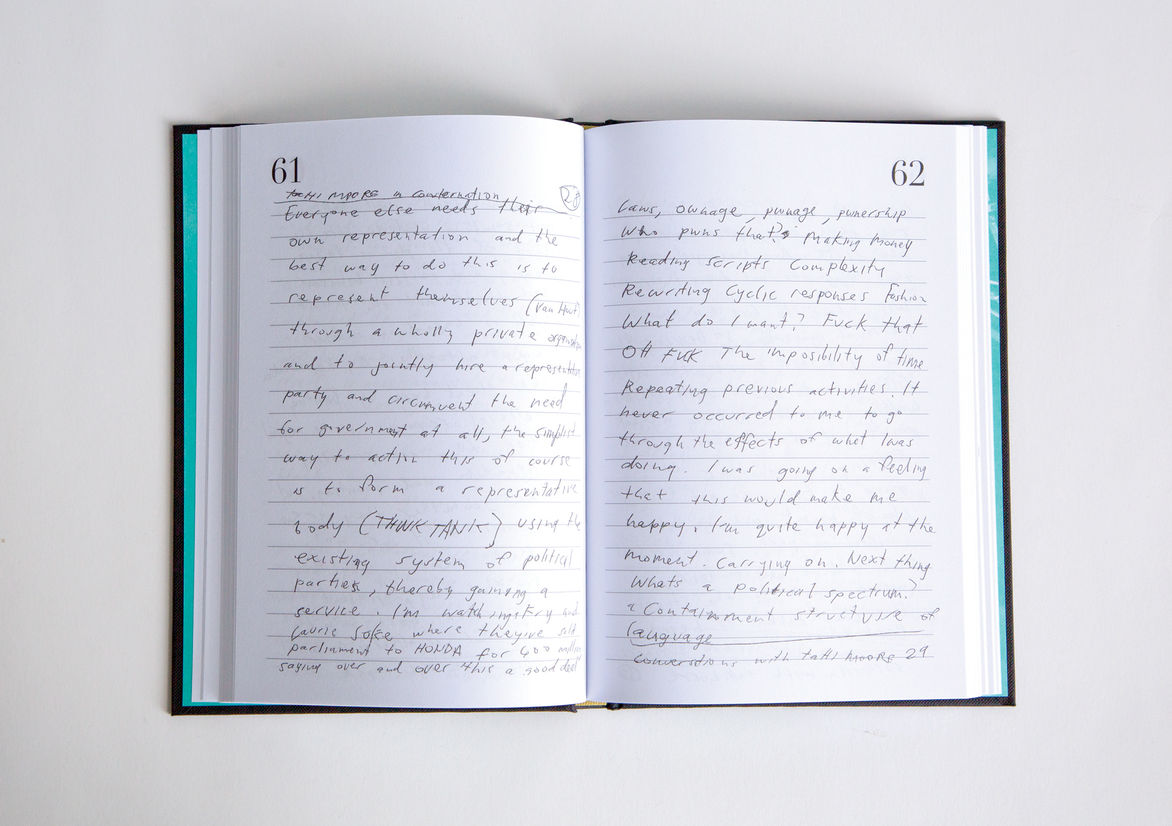 61
taHi MOORE in conversation 28
Everyone else needs their
own representation and the
best way to do this is to
represent themselves (Van Hout)
through a wholly private
and to jointly hire a representation
party and circumvent the need
for government at all, the simplist
way to action this of course
is to form a representative
body (THINK TANK) using the
existing system of political
parties, thereby gaining a
service. I'm watching Fry and
Laurie joke where they
parliament to HONDA for 400 million
saying over and over this a good deal
62
Laws, ownage, pwnage, pwnership
Who pwns that? Making money
Reading scripts Complexity
Rewriting Cyclic responses Fashion
What do I want? Fuck that
OH FUK The imposibility of time
Repeating previous activities. It
never occurred to me to go
through the effects of what I was
doing. I was going on a feeling
that this would make me
happy. I'm quite happy at the
moment. Carrying on. Next thing
Whats a political spectrum?
a Containment structure of
language
Conversations with taHi MOORE 29